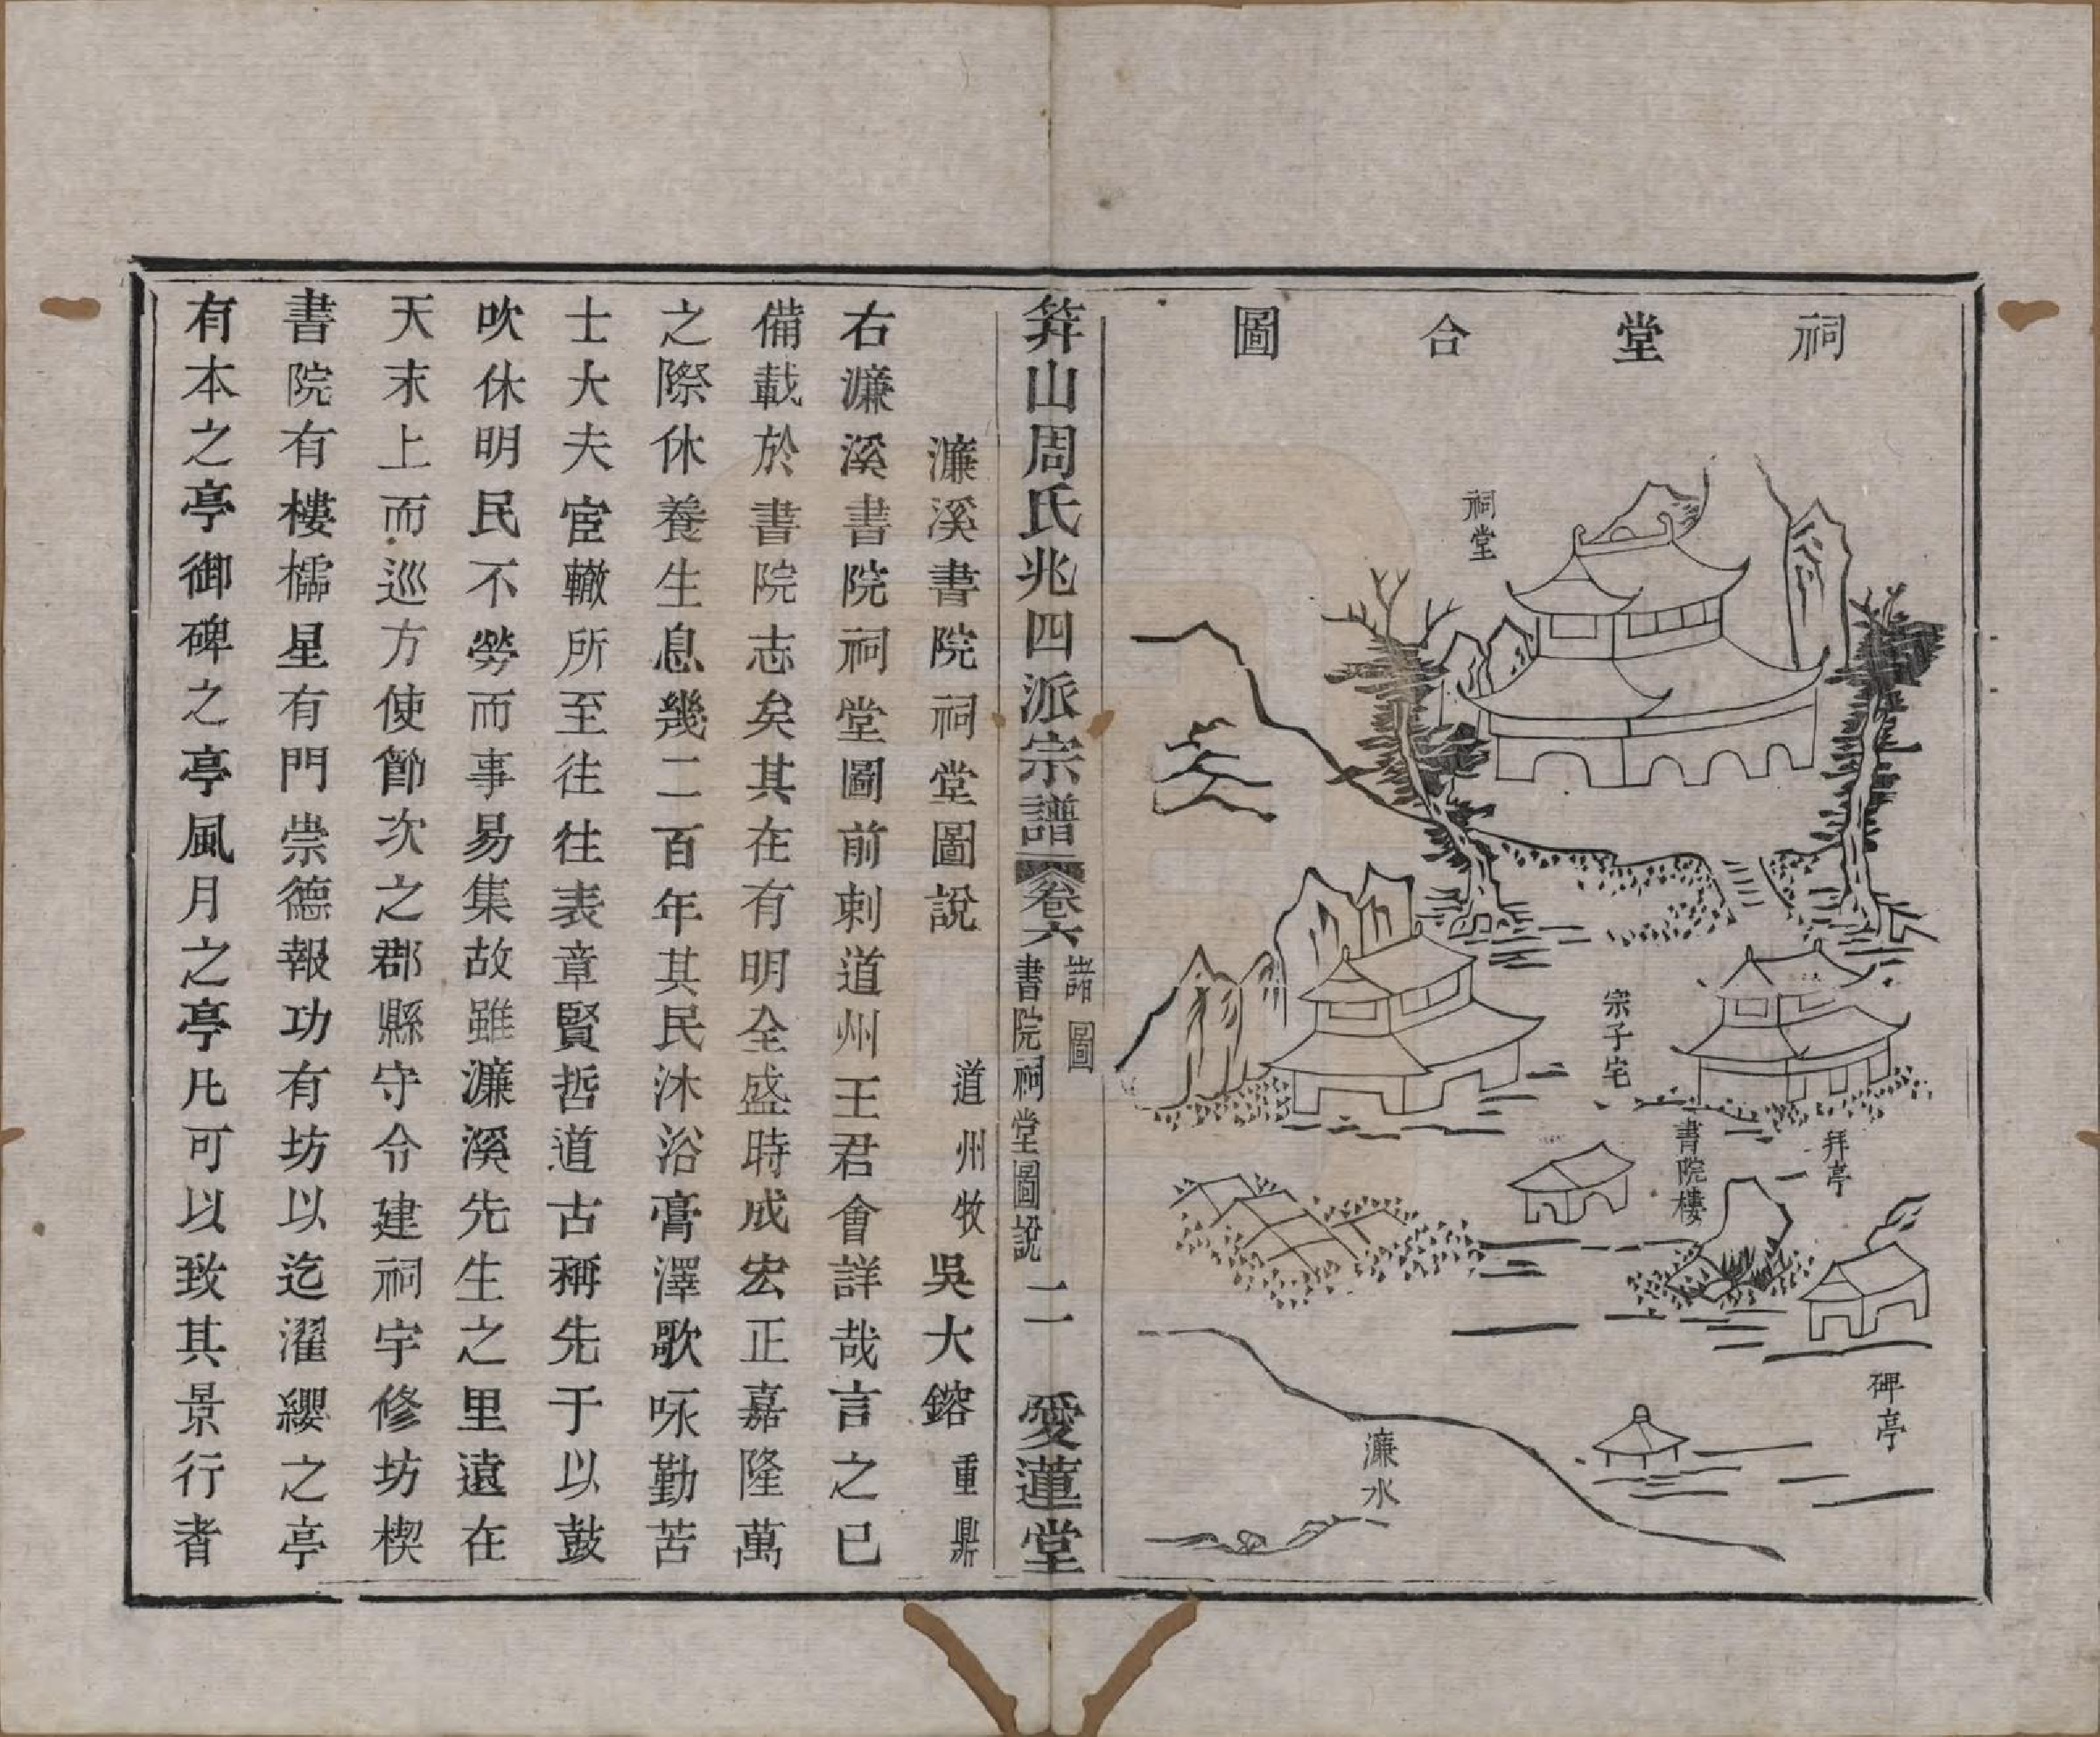 祠堂合圖
祠堂
宗子宅
拜亭
書院樓
碑亭
濂水
筭山周氏兆四派宗譜 卷六 諸圖 書院祠堂圖說 二 愛蓮堂
濂溪書院祠堂圖說 道州牧吳大鎔重鼎
右濂溪書院祠堂圖前刺道州王君會詳哉言之已
備載於書院志矣其在有明全盛時成宏正嘉隆萬
之際休養生息幾二百年其民沐浴膏澤歌咏勤苦
士大夫宦轍所至往往表章賢哲道古稱先于以鼓
吹休明民不勞而事易集故雖濂溪先生之里遠在
天末上而巡方使節次之郡縣守令建祠宇修坊楔
書院有樓櫺星有門崇德報功有坊以迄濯纓之亭
有本之亭御碑之亭風月之亭凡可以致其景行者